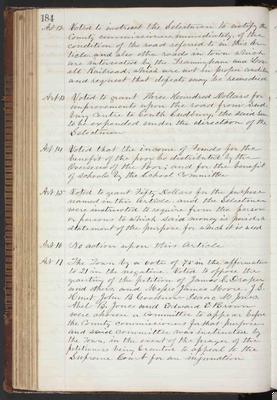 184
Art 12 Voted to instruct the Selectmen to notify the
County commissioners immediately, of the
condition of the road referred to in this Ar-
ticle and also other roads in town which
are intersected by the Framingham and Low-
ell Railroad, which are not in proper order
and request that defects may be remedied
Art 13 Voted to grant Three Hundred Dollars for
improvements upon the road from Sud-
bury Centre to South Sudbury, the said sum
to be expended under the direction of the
Selectmen
Art 14 Voted that the income of Funds for the
benefit of the poor be distributed by the
Overseers of the Poor, and for the benefit
of schools by the School Committee
Art 15 Voted to grant Fifty Dollars for the purpose
named in this Article, and the Selectmen
were instructed to require from the person
or persons to which said money is paid a
statement of the purpose for which it is used
Art 16 No action upon this Article
Art 17 The Town by a vote of 75 in the affirmative
to 21 in the negative Voted to oppose the
granting of the petition of James L. Draper
and others and Messrs James Moore, J. S.
Hunt John B Goodnow Isaac
Abel B. Jones and Edward
were chosen a Committee to appear before
the County commissioners for that purpose
and said Committee was instructed by
the Town, in the event of the prayer of the
petitioners being granted to appeal to the
Supreme Court for an injunction